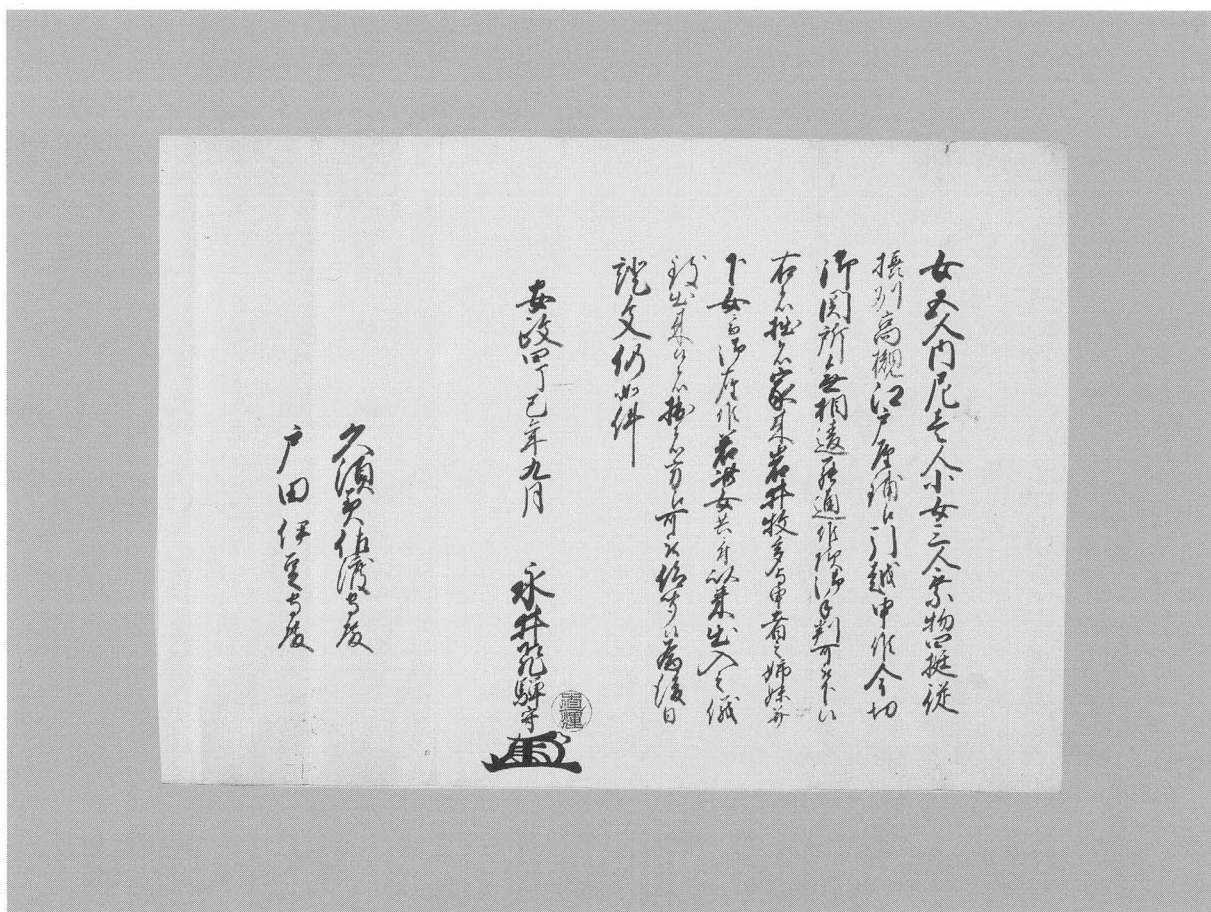 女五人内尼壱人小女三人乗物四挺従
摂州高槻江戸屋鋪江引越申候今切
御関所無相違罷通候様御手判可被下候
右者拙者家来岩井牧多与申者之姉妹并
下女ニ而御座候若此女共ニ付以来出入之儀
致出来候者拙者方江可被仰聞候為後日
證文仍如件
安政四丁巳年九月
永井飛騨守
直輝
久須美佐渡守殿
戸田伊豆守殿